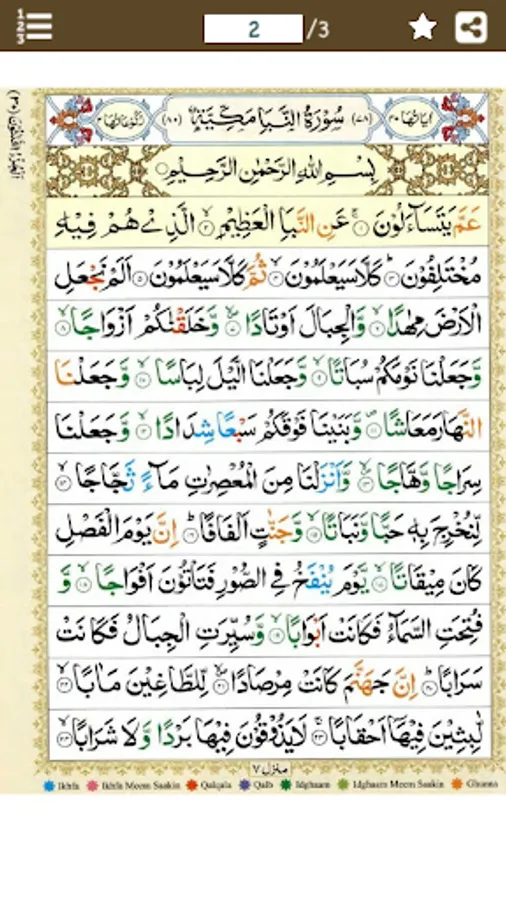 2 /3
اٰيَاتُهَا ٤٠ (٧٨) سُوْرَةُ النَّبَاِ مَكِّيَّةٌ (٨٠) رُكُوْعَاتُهَا ٢
بِسْمِ اللّٰهِ الرَّحْمٰنِ الرَّحِيْمِ
عَمَّ يَتَسَآءَلُوْنَ ۚ﴿١﴾ عَنِ النَّبَاِ الْعَظِيْمِ ۙ﴿٢﴾ الَّذِيْ هُمْ فِيْهِ
مُخْتَلِفُوْنَ ؕ﴿٣﴾ كَلَّا سَيَعْلَمُوْنَ ۙ﴿٤﴾ ثُمَّ كَلَّا سَيَعْلَمُوْنَ ﴿٥﴾ اَلَمْ نَجْعَلِ
الْاَرْضَ مِهٰدًا ۙ﴿٦﴾ وَّالْجِبَالَ اَوْتَادًا ۪ۙ﴿٧﴾ وَّخَلَقْنٰكُمْ اَزْوَاجًا ۙ﴿٨﴾
وَّجَعَلْنَا نَوْمَكُمْ سُبَاتًا ۙ﴿٩﴾ وَّجَعَلْنَا الَّيْلَ لِبَاسًا ۙ﴿١٠﴾ وَّجَعَلْنَا
النَّهَارَ مَعَاشًا ۪﴿١١﴾ وَّبَنَيْنَا فَوْقَكُمْ سَبْعًا شِدَادًا ۙ﴿١٢﴾ وَّجَعَلْنَا
سِرَاجًا وَّهَّاجًا ۪ۙ﴿١٣﴾ وَّاَنْزَلْنَا مِنَ الْمُعْصِرٰتِ مَآءً ثَجَّاجًا ۙ﴿١٤﴾
لِّنُخْرِجَ بِهٖ حَبًّا وَّنَبَاتًا ۙ﴿١٥﴾ وَّجَنّٰتٍ اَلْفَافًا ؕ﴿١٦﴾ اِنَّ يَوْمَ الْفَصْلِ
كَانَ مِيْقَاتًا ۙ﴿١٧﴾ يَّوْمَ يُنْفَخُ فِي الصُّوْرِ فَتَاْتُوْنَ اَفْوَاجًا ۙ﴿١٨﴾ وَّ
فُتِحَتِ السَّمَآءُ فَكَانَتْ اَبْوَابًا ۙ﴿١٩﴾ وَّسُيِّرَتِ الْجِبَالُ فَكَانَتْ
سَرَابًا ؕ﴿٢٠﴾ اِنَّ جَهَنَّمَ كَانَتْ مِرْصَادًا ۪ۙ﴿٢١﴾ لِّلطَّاغِيْنَ مَاٰبًا ۙ﴿٢٢﴾
لّٰبِثِيْنَ فِيْهَاۤ اَحْقَابًا ۚ﴿٢٣﴾ لَا يَذُوْقُوْنَ فِيْهَا بَرْدًا وَّلَا شَرَابًا ۙ﴿٢٤﴾
منزل ٧
Ikhfa Ikhfa Meem Saakin Qalqala Qalb Idghaam Idghaam Meem Saakin Ghunna